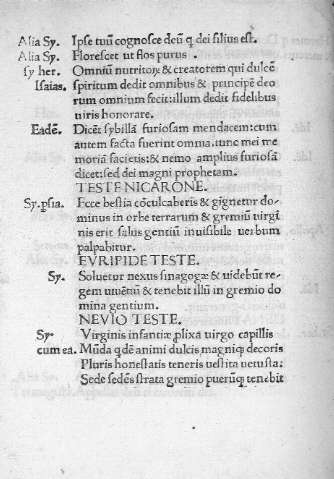 Alia Sy. Ipse tuū cognosce deū q dei filius est.
Alia Sy. Florescet ut flos purus
sy her. Omniū nutritorē & creatorem qui dulcē
Isaias. spiritum dedit omnibus & principē deo
rum omnium fecit illum dedit fidelibus
uiris honorare.
Eadē. Dicēt sybillā furiosam mendacem: cum
autem facta fuerint omnia. tunc mei me
moriā facietis: & nemo amplius furiosā
dicet: sed dei magni prophetam.
TESTE NICARONE.
Sy. psia. Ecce bestia cōculcaberis & gignetur do
minus in orbe terrarum & gremiū uirgi
nis erit salus gentiū inuisibile uerbum
palpabitur.
EVRIPIDE TESTE.
Sy. Soluetur nexus sinagogæ & uidebūt re
gem uiuētiū & tenebit illū in gremio do
mina gentium.
NEVIO TESTE.
Sy. Virginis infantiæ plixa uirgo capillis
cumea. Mūda qdē animi dulcis magniq; decoris
Pluris honestatis teneris uestita uetusta:
Sede sedēs strata gremio puerūq; tenebit